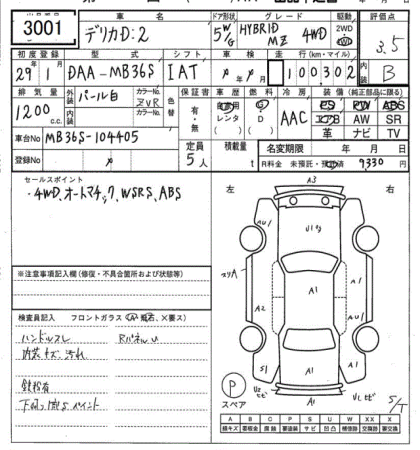 3001
車名
ドア形状
グレード
駆動
評価点
デリカD:2
5W/G
HYBRID MZ 4WD
2WD
4WD
3.5
初度登録
型式
シフト
車検
走行(km・マイル)
内装
29年1月
DAA-MB36S
IAT
年 月
100,302
B
排気量
外装
パール白
カラーNo.
ZVR
色替
保証書
車歴
燃料
冷房
装備
(純正部品に限る)
1200 c.c.
内装
カラーNo.
有・無
自家用
レンタ
( )
G
D
( )
AAC
PS PW ABS
エアB AW SR
革 ナビ TV
車台No
MB36S-104405
定員
5人
積載量
t
名変期限
年 月 日
登録No
R料金 未預託・預託済 9,330円
セールスポイント
・4WD、オートマチック、WSRS、ABS
左
右
A3
AU1
U1
A1
スリA
A2
A1
A1
A1
AU1
S1
A1
※注意事項記入欄(修復・不具合箇所および状態等)
検査員記入
フロントガラス(A・飛石、×要ス)
ハンドルスレ
RパネルU
内装キズ、汚れ
鉄粉有
下回り傷Sペイント
P
スペア
S/T
A B C P S U W X XX
線キズ 板金